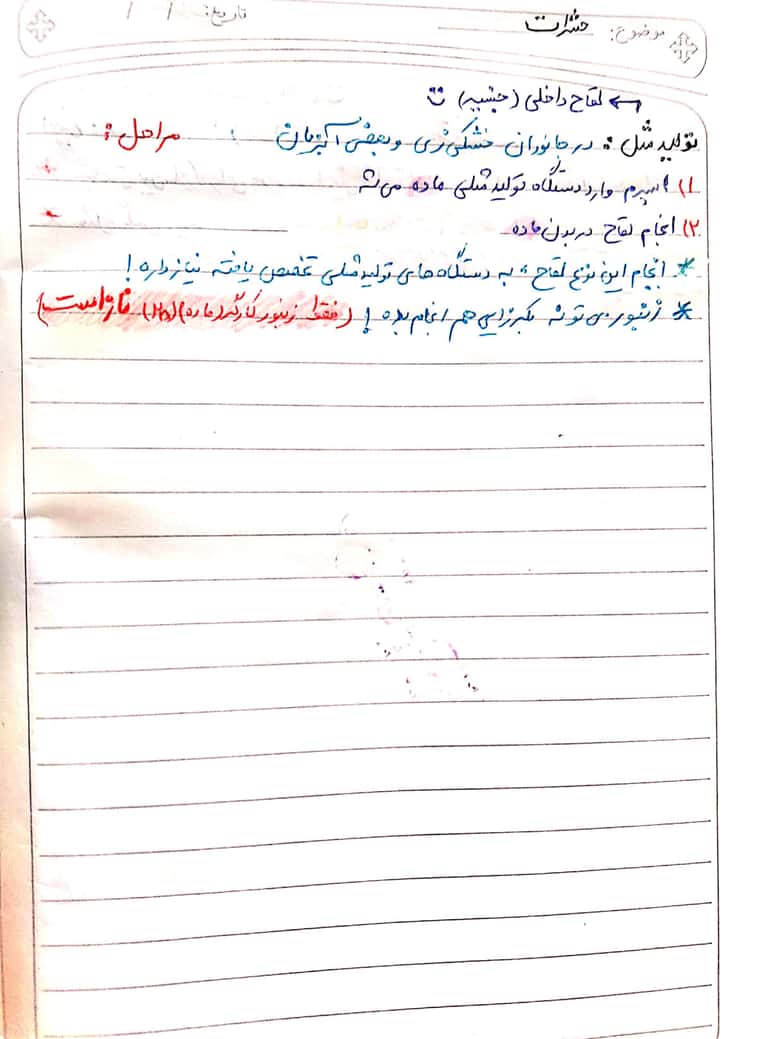 موضوع: حشرات تاریخ: / /
← لقاح داخلی (جنبیه)
تولیدمثل: در جانوران خشکی‌زی و بعضی آبزیان مراحل:
۱) اسپرم وارد دستگاه تولیدمثلی ماده می‌شه
۲) انجام لقاح در بدن ماده
* انجام این نوع لقاح، به دستگاه‌های تولیدمثلی تخصص یافته نیاز داره!
* زنبور می‌تونه بکرزایی هم انجام بده! (فقط زنبور کارگر (ماده) (2n) نازاست)